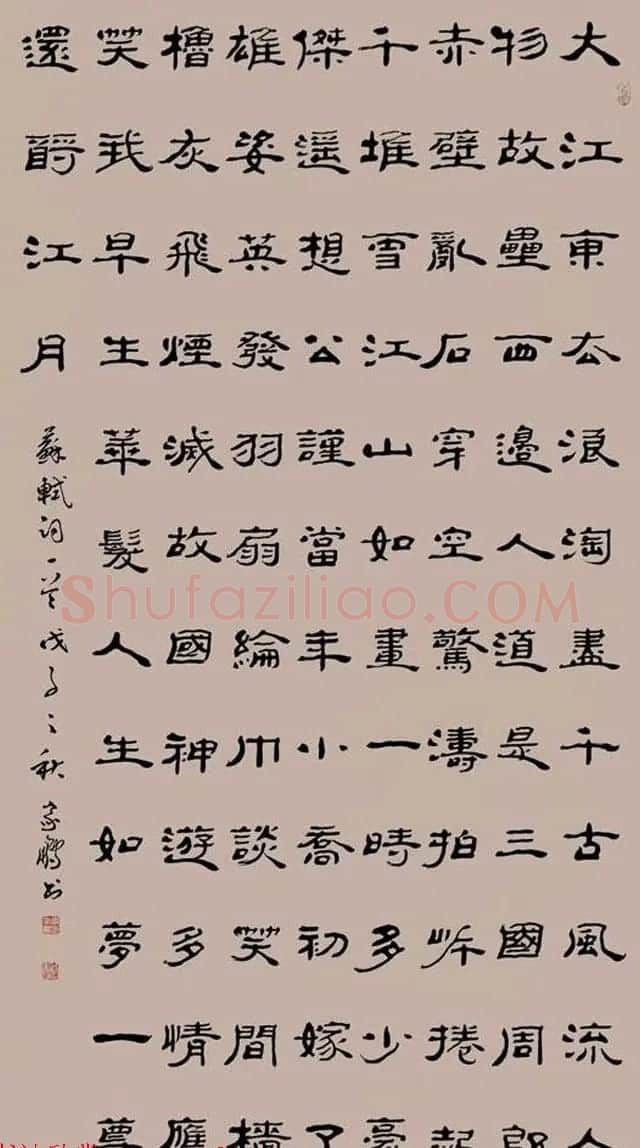 大江東去浪淘盡千古風流人
物故壘西邊人道是三國周郎
赤壁亂石穿空驚濤拍岸捲起
千堆雪江山如畫一時多少豪
傑遥想公謹當年小喬初嫁了
雄姿英發羽扇綸巾談笑間檣
櫓灰飛煙滅故國神遊多情應
笑我早生華髮人生如夢一尊
還酹江月
蘇軾詞一首戊子之秋家鵬書
Shufaziliao.COM